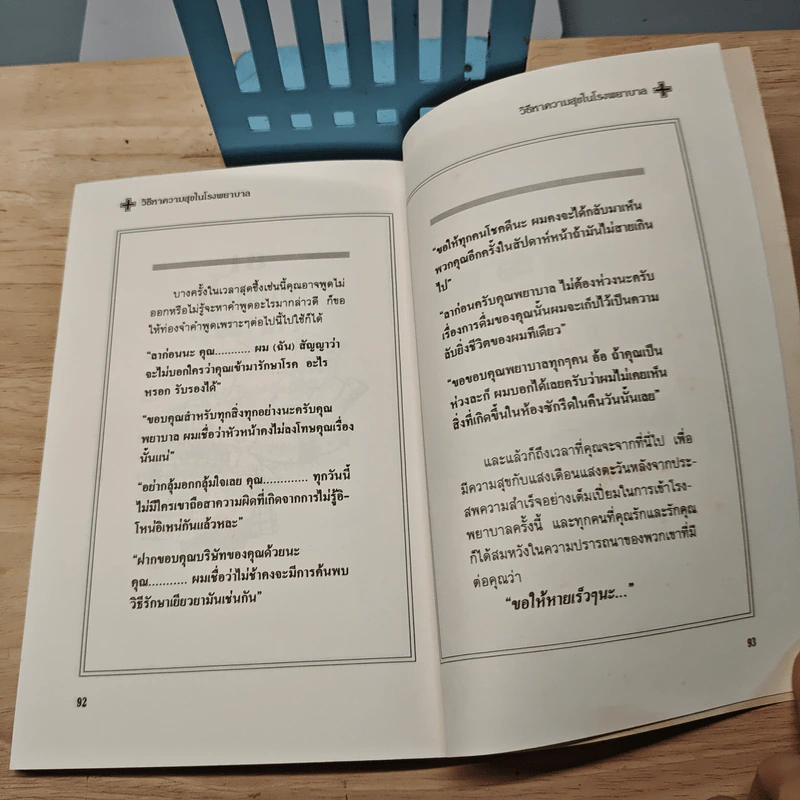 วิธีหาความสุขในโรงพยาบาล
บางครั้งในเวลาสุดซึ้งเช่นนี้คุณอาจพูดไม่
ออกหรือไม่รู้จะหาคำพูดอะไรมากล่าวดี ก็ขอ
ให้ท่องจำคำพูดเพราะๆต่อไปนี้ไปใช้ก็ได้
“ลาก่อนนะ คุณ........... ผม (ฉัน) สัญญาว่า
จะไม่บอกใครว่าคุณเข้ามารักษาโรค อะไร
หรอก รับรองได้”
“ขอบคุณสำหรับทุกสิ่งทุกอย่างนะครับคุณ
พยาบาล ผมเชื่อว่าหัวหน้าคงไม่ลงโทษคุณเรื่อง
นั้นแน่”
“อย่ากลุ้มอกกลุ้มใจเลย คุณ............. ทุกวันนี้
ไม่มีใครเขาถือสาความผิดที่เกิดจากการไม่รู้อิ-
โหน่อิเหน่กันแล้วหละ”
“ฝากขอบคุณบริษัทของคุณด้วยนะ
คุณ........... ผมเชื่อว่าไม่ช้าคงจะมีการค้นพบ
วิธีรักษาเยียวยามันเช่นกัน”
92
วิธีหาความสุขในโรงพยาบาล
“ขอให้ทุกคนโชคดีนะ ผมคงจะได้กลับมาเห็น
พวกคุณอีกครั้งในสัปดาห์หน้าถ้ามันไม่สายเกิน
ไป”
“ลาก่อนครับคุณพยาบาล ไม่ต้องห่วงนะครับ
เรื่องการดื่มของคุณนั้นผมจะเก็บไว้เป็นความ
ลับยิ่งชีวิตของผมทีเดียว”
“ขอขอบคุณพยาบาลทุกๆคน อ้อ ถ้าคุณเป็น
ห่วงละก็ ผมบอกได้เลยครับว่าผมไม่เคยเห็น
สิ่งที่เกิดขึ้นในห้องซักรีดในคืนวันนั้นเลย”
และแล้วก็ถึงเวลาที่คุณจะจากที่นี่ไป เพื่อ
มีความสุขกับแสงเดือนแสงตะวันหลังจากประ-
สพความสำเร็จอย่างเต็มเปี่ยมในการเข้าโรง-
พยาบาลครั้งนี้ และทุกคนที่คุณรักและรักคุณ
ก็ได้สมหวังในความปรารถนาของพวกเขาที่มี
ต่อคุณว่า
“ขอให้หายเร็วๆนะ...”
93